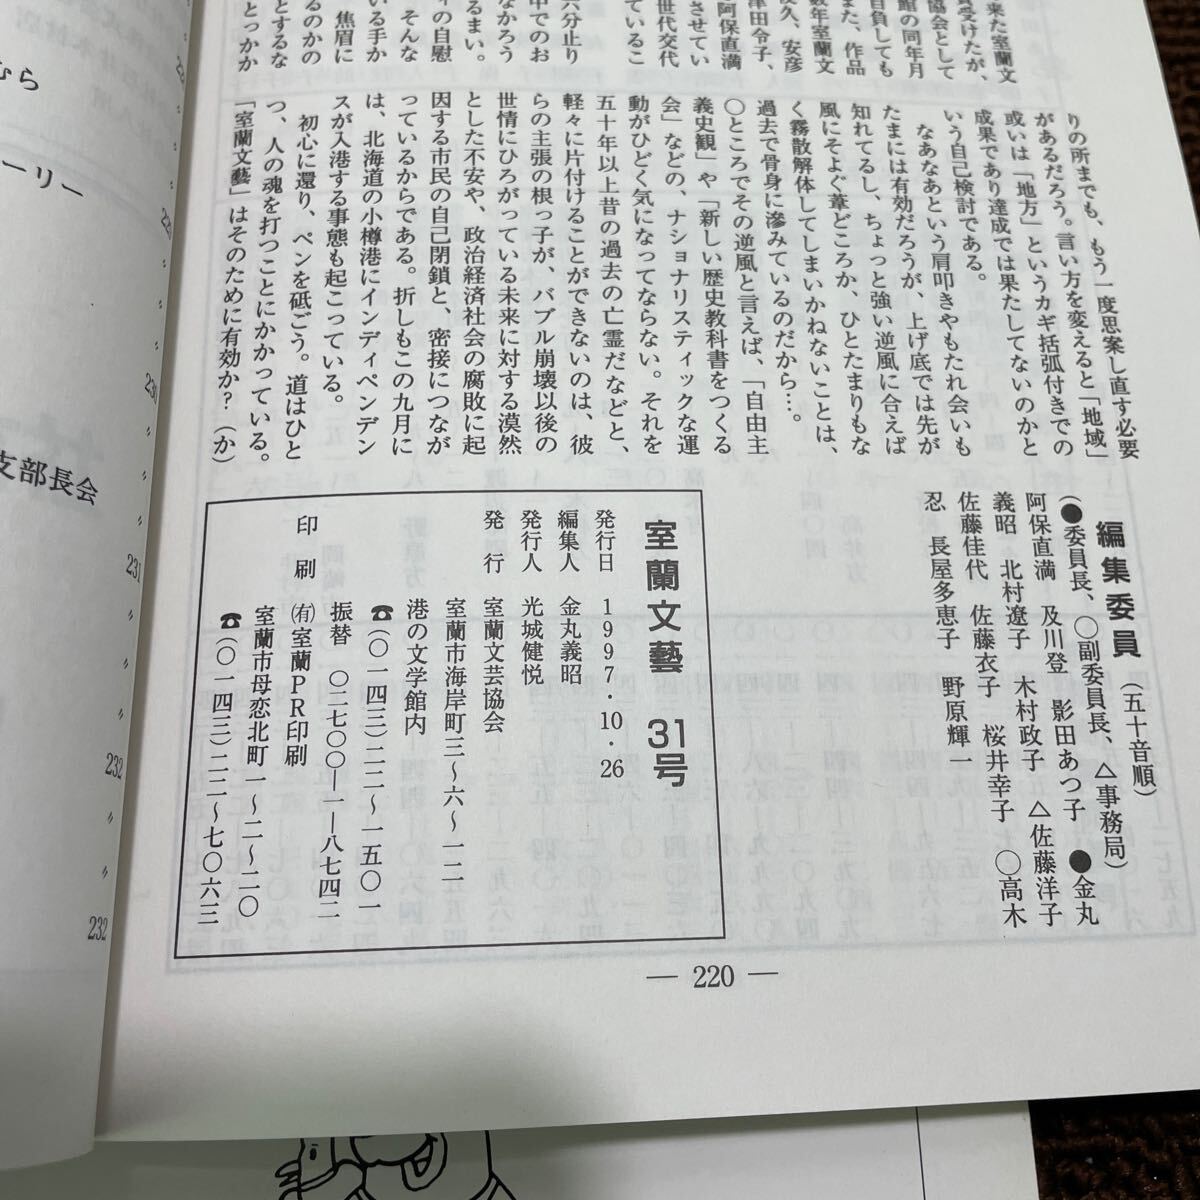 来た室蘭文
賞受けたが、
協会として
館の同年月
自負しても
また、作品
数年室蘭文
俊久、安彦
津田令子、
阿保直満
させてい
世代交代
ているこ
六分止り
中でのお
なかろう
るまい。
ィの自慰
そんな
いる手か
焦眉に
るのかの
とするな
とっかか
りの所までも、もう一度思案し直す必要
があるだろう。言い方を変えると「地域」
或いは「地方」というカギ括弧付きでの
成果であり達成では果たしてないのかと
いう自己検討である。
なあなあという肩叩きやもたれ会いも
たまには有効だろうが、上げ底では先が
知れてるし、ちょっと強い逆風に合えば
風にそよぐ葦どころか、ひとたまりもな
く霧散解体してしまいかねないことは、
過去で骨身に滲みているのだから…。
○ところでその逆風と言えば、「自由主
義史観」や「新しい歴史教科書をつくる
会」などの、ナショナリスティックな運
動がひどく気になってならない。それを
五十年以上昔の過去の亡霊だなどと、
軽々に片付けることができないのは、彼
らの主張の根っ子が、バブル崩壊以後の
世情にひろがっている未来に対する漠然
とした不安や、政治経済社会の腐敗に起
因する市民の自己閉鎖と、密接につなが
っているからである。折しもこの九月に
は、北海道の小樽港にインディペンデン
スが入港する事態も起こっている。
初心に還り、ペンを砥ごう。道はひと
つ、人の魂を打つことにかかっている。
「室蘭文藝」はそのために有効か？（か）
編集委員（五十音順）
（●委員長、○副委員長、△事務局）
阿保直満　及川登　影田あつ子　●金丸
義昭　北村遼子　木村政子　△佐藤洋子
佐藤佳代　佐藤衣子　桜井幸子　○高木
忍　長屋多恵子　野原輝一
室蘭文藝　31号
発行日　1997・10・26
編集人　金丸義昭
発行人　光城健悦
発行　室蘭文芸協会
室蘭市海岸町三～六～一二
港の文学館内
☎（０１４３）二二～一五〇一
振替　〇二七〇〇―一―八七四二
印刷　㈲室蘭ＰＲ印刷
室蘭市母恋北町一～二～二〇
☎（０１４３）二二～七〇六三
― 220 ―
むら
ーリー
支部長会
229
230
231
232
232